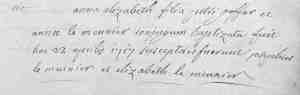 anna elizabeth filia julii poffor et
anna le meunier conjugum baptizata fuit
hac 22 aprilis 1717 susceptores fuerunt
le meunier et elizabeth le meunier